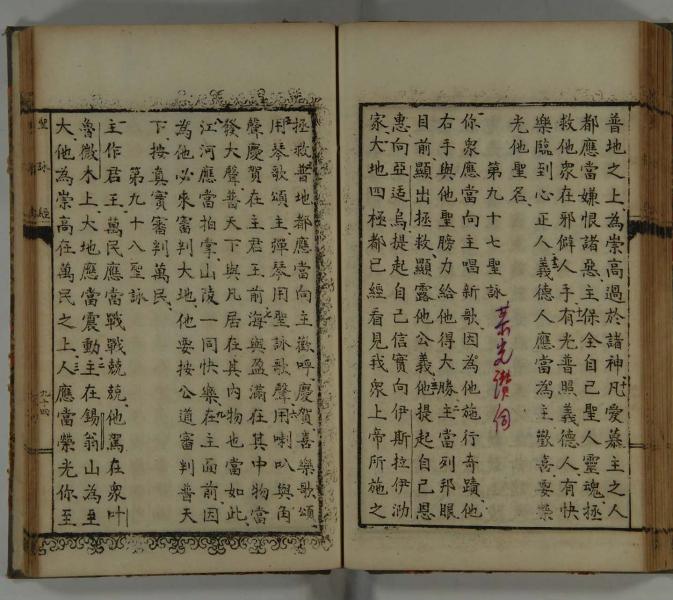 普地之上為崇高過於諸神凡愛慕主之人
都應當嫌恨諸惡主保全自己聖人靈魂拯
救他衆在邪僻人手有光普照義德人有快
樂臨到心正人義德人應當為主歡喜要榮
光他聖名
第九十七聖詠
你衆應當向主唱新歌因為他施行奇蹟他
右手與他聖膀力給他得大勝主當列邦眼
目前顯出拯救顯露他公義他提起自己恩
惠向亞适烏提起自己信實向伊斯拉伊泐
家大地四極都已經看見我衆上帝所施之
拯救普地都應當向主歡呼慶賀喜樂歌頌
用琴歌頌主彈琴用聖詠歌聲用喇叭與角
聲慶賀在主君王前海與盈滿在其中物當
發大聲普天下與凡居在其內物也當如此
江河應當拍掌山陵一同快樂在主面前因
為他必來審判大地他要按公道審判普天
下按真實審判萬民
第九十八聖詠
主作君王萬民應當戰戰兢兢他駕在衆叶
魯微木上大地應當震動主在錫翁山為至
大他為崇高在萬民之上人應當榮光你至
聖詠經
九十四
讚詞